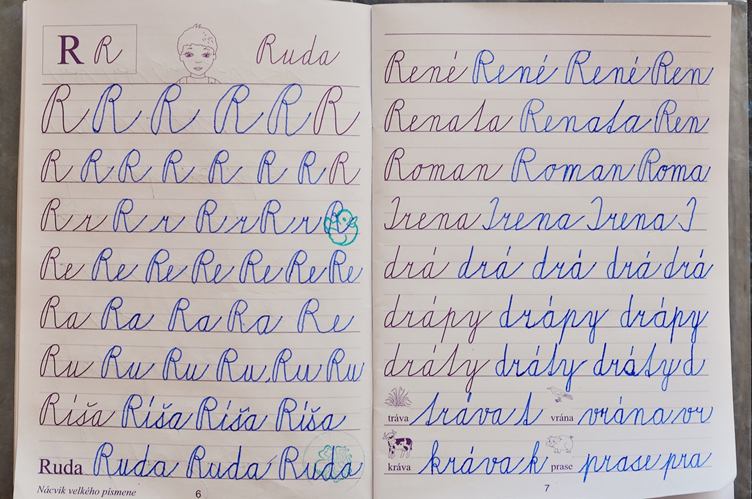 R R Ruda
R R R R R R
R R R R R R R R
R r R r R r R r R
Re Re Re Re Re Re Re
Ra Ra Ra Ra Re
Ru Ru Ru Ru Ru Ru
Ríša Ríša Ríša Ríša
Ruda Ruda Ruda Ruda
Nácvik velkého písmene 6
René René René Ren
Renata Renata Ren
Roman Roman Roma
Irena Irena Irena I
drá drá drá drá drá
drápy drápy drápy
dráty dráty dráty d
tráva tráva t vrána vrána vr
kráva kráva k prase prase pra
7